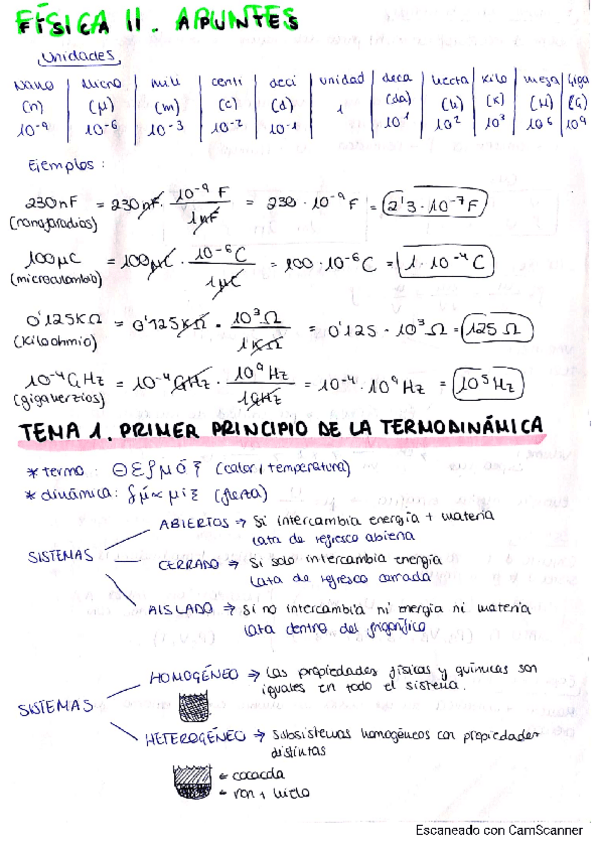 FÍSICA II. APUNTES
Unidades
Nano | Micro | mili | centi | deci | unidad | deca | hecta | kilo | mega | Giga
(n) | (μ) | (m) | (c) | (d) | 1 | (da) | (h) | (k) | (M) | (G)
10⁻⁹ | 10⁻⁶ | 10⁻³ | 10⁻² | 10⁻¹ | 10¹ | 10² | 10³ | 10⁶ | 10⁹
Ejemplos :
230nF = 230nF · 10⁻⁹ F / 1nF = 230 · 10⁻⁹ F = 2'3 · 10⁻⁷ F
(nanofaradios)
100μC = 100μC · 10⁻⁶ C / 1μC = 100 · 10⁻⁶ C = 1 · 10⁻⁴ C
(microculombio)
0'125KΩ = 0'125KΩ · 10³ Ω / 1KΩ = 0'125 · 10³ Ω = 125 Ω
(Kiloohmio)
10⁻⁴GHz = 10⁻⁴GHz · 10⁹ Hz / 1GHz = 10⁻⁴ · 10⁹ Hz = 10⁵ Hz
(gigaherzios)
TEMA 1. PRIMER PRINCIPIO DE LA TERMODINÁMICA
* termo : (calor, temperatura)
* dinámica : (fuerza)
ABIERTOS → Si intercambia energía + materia
lata de refresco abierta
SISTEMAS
CERRADO → Si solo intercambia energía
Lata de refresco cerrada
AISLADO → Si no intercambia ni energia ni materia
lata dentro del frigorífico
HOMOGÉNEO → Las propiedades físicas y químicas son
iguales en todo el sistema.
SISTEMAS
HETEROGÉNEO → Subsistemas homogéneos con propiedades
distintas
← cocacola
← ron + hielo
Escaneado con CamScanner